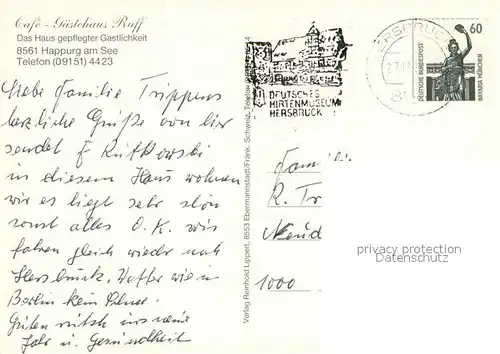 Café - Gästehaus Ruff
Das Haus gepflegter Gastlichkeit
8561 Happurg am See
Telefon (09151) 4423
Liebe Familie Trippens
herzliche Grüße von hier
sendet F Rutkowski
in diesem Haus wohnen
wir es liegt sehr schön
sonst alles O.K. wir
fahren gleich wieder nach
Hersbruck. Wetter wie in
Berlin kein Schnee.
Guten rutsch ins neue
Jahr u. Gesundheit
Verlag Reinhold Lippert, 8553 Ebermannstadt/Fränk. Schweiz, Telefon
DEUTSCHES
HIRTENMUSEUM
HERSBRUCK
ERSBRUCK
60
DEUTSCHE BUNDESPOST
BAVARIA MÜNCHEN
Famili
R. Tr
Neud
1000
privacy protection
Datenschutz